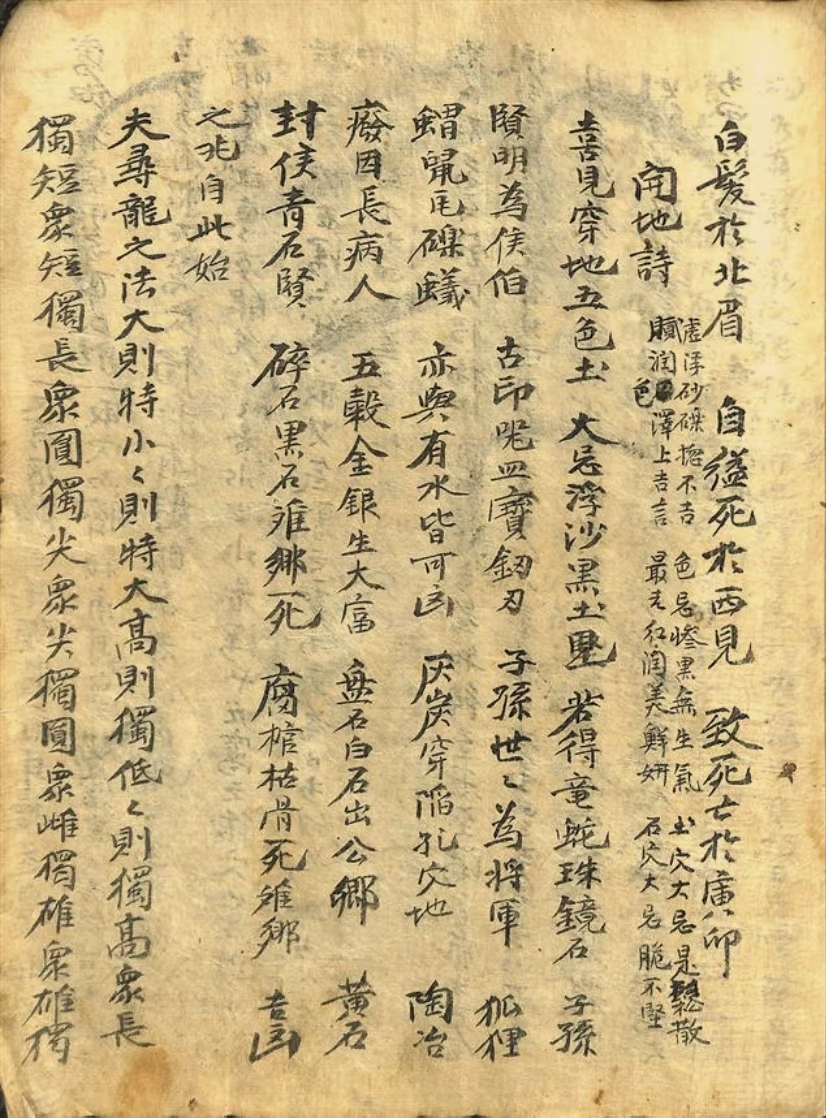 白髮於北眉 自縊死於西見 致死亡於庚卯
開地詩
虛浮砂磜揔不吉 色忌慘黑無生氣 土穴大忌是鬆散
膩润色澤上吉言 最尤红润美鮮妍 石穴大忌脆不堅
喜見穿地五色土 大忌浮沙黑土墾 若得竜蛇珠鏡石 子孫
賢明為侯伯 古印 皿寶釼刃 子孫世〻為将軍 狐狸
鼠 磜蟻 亦與有水皆可凶 灰炭穿陷孔穴地 陶冶
癈因長病人 五穀金銀生大富 盘石白石出公卿 黄石
封侯青石賢 碎石黑石难鄉死 腐棺枯骨死难鄉 吉凶
之兆自此始
夫尋龍之法大則特小〻則特大高則獨低〻則獨高衆長
獨短衆短獨長衆圓獨尖衆尖獨圓衆雌獨雄衆雄獨